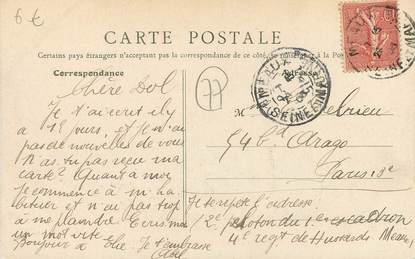 6 €
CARTE POSTALE
Certains pays étrangers n'acceptant pas la correspondance de ce côté, se
Correspondance
Chère
Je t'ai écrit il y
a 15 jours, et je n'ai
pas de nouvelles de vous
N'as tu pas reçu ma
carte? Quant à moi
Je commence à m'ha
bituer et n'ai pas trop
à me plaindre Ecris moi
un mot vite
Bonjour à Elie Je t'embrasse
MEAUX
SEINE
54 bd Arago
Paris
Je te répète l'adresse.
2e peloton du 1er escadron
4e regt de Hussards Meaux